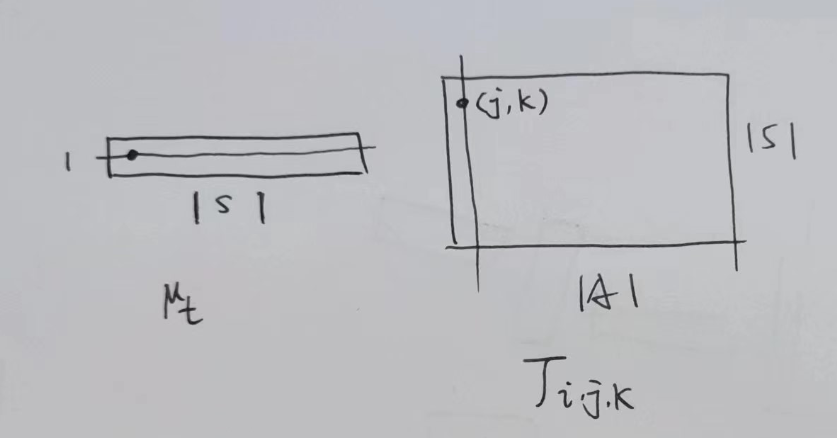 1
|S|
μt
(j,k)
|S|
|A|
Ti.j.k